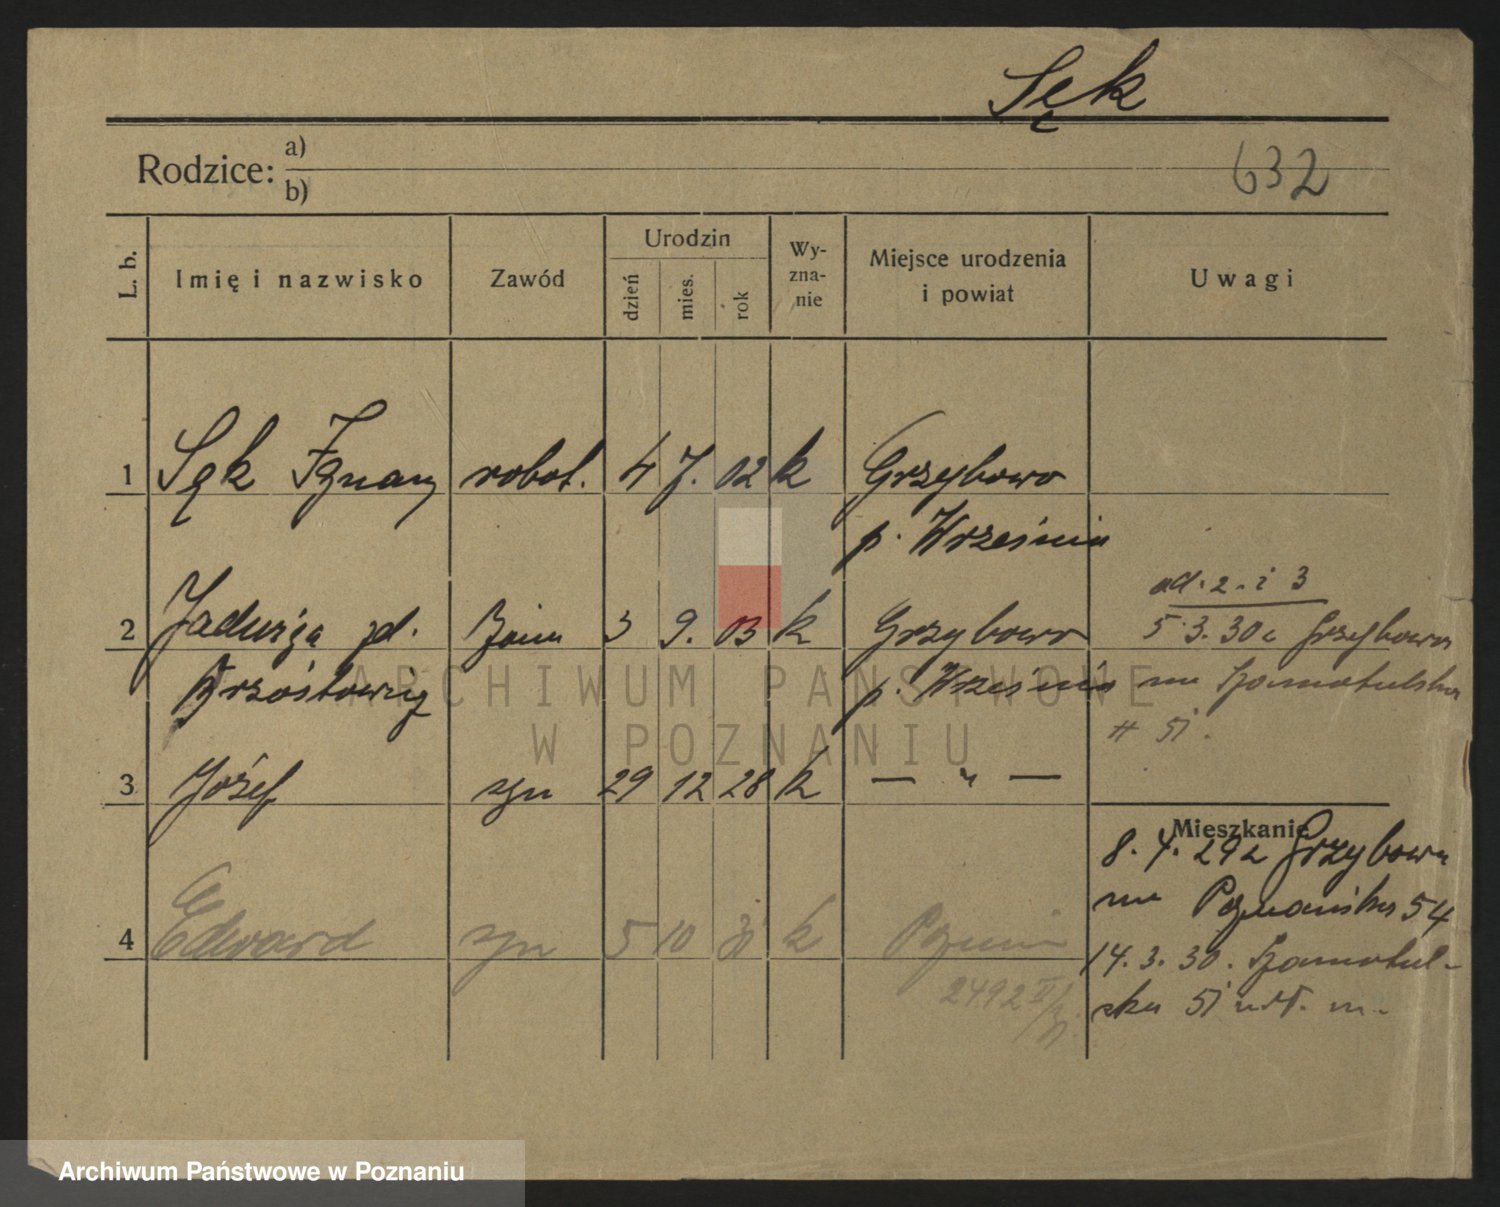 Sęk
Rodzice: a)
b)
632
L. b.
Imię i nazwisko
Zawód
Urodzin
dzień
mies.
rok
Wy-
zna-
nie
Miejsce urodzenia
i powiat
Uwagi
1 Sęk Ignacy robot. 4 7. 02 k Grzybowo
p. Września
2 Jadwiga zd. żona 3 9. 03 k Grzybowo
Brzóstowicz p. Września
ad. 2. i 3
5.3.30 z Grzybowa
na Szamotulska
# 51.
3 Józef syn 29 12 28 k — " —
Mieszkanie
8. 4. 29 z Grzybowa
na Poznańska 54
14. 3. 30. Szamotul-
ska 51 m.
4 Edward syn 5 10 31 k Poznań
2492
ARCHIWUM PAŃSTWOWE
W POZNANIU
Archiwum Państwowe w Poznaniu